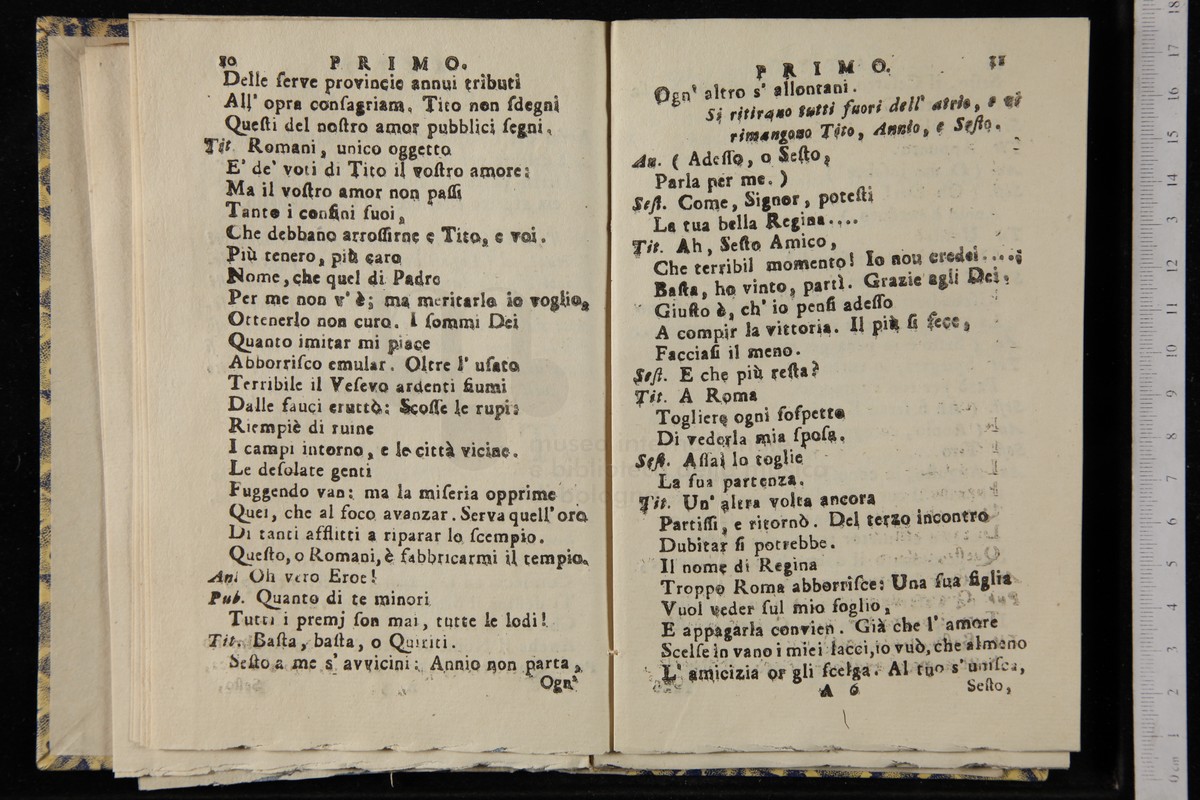 10 PRIMO.
Delle ſerve provincie annui tributi
All' opra conſagriam. Tito non ſdegni
Queſti del noſtro amor pubblici ſegni.
Tit. Romani, unico oggetto
E' de' voti di Tito il voſtro amore:
Ma il voſtro amor non paſſi
Tanto i confini ſuoi,
Che debbano arroſſirne e Tito, e voi.
Più tenero, più caro
Nome, che quel di Padre
Per me non v' è; ma meritarlo io voglio,
Ottenerlo non curo. I ſommi Dei
Quanto imitar mi piace
Abborriſco emular. Oltre l' uſato
Terribile il Veſevo ardenti fiumi
Dalle fauci eruttò: Scoſſe le rupi:
Riempiè di ruine
I campi intorno, e le città vicine.
Le deſolate genti
Fuggendo van: ma la miſeria opprime
Quei, che al foco avanzar. Serva quell' oro
Di tanti afflitti a riparar lo ſcempio.
Queſto, o Romani, è fabbricarmi il tempio.
An. Oh vero Eroe!
Pub. Quanto di te minori
Tutti i premj ſon mai, tutte le lodi!
Tit. Baſta, baſta, o Quiriti.
Seſto a me s' avvicini: Annio non parta,
Ogn'
PRIMO. 11
Ogn' altro s' allontani.
Si ritirano tutti fuori dell' atrio, e vi
rimangono Tito, Annio, e Seſto.
An. ( Adeſſo, o Seſto,
Parla per me. )
Seſt. Come, Signor, poteſti
La tua bella Regina....
Tit. Ah, Seſto Amico,
Che terribil momento! Io non credei....:
Baſta, ho vinto, partì. Grazie agli Dei.
Giuſto è, ch' io penſi adeſſo
A compir la vittoria. Il più ſi fece,
Facciaſi il meno.
Seſt. E che più reſta?
Tit. A Roma
Togliere ogni ſoſpetto
Di vederla mia ſpoſa.
Seſt. Aſſai lo toglie
La ſua partenza.
Tit. Un' altra volta ancora
Partiſſi, e ritornò. Del terzo incontro
Dubitar ſi potrebbe.
Il nome di Regina
Troppo Roma abborriſce: Una ſua figlia
Vuol veder ſul mio ſoglio,
E appagarla convien. Già che l' amore
Scelſe in vano i miei lacci, io vuò, che almeno
L' amicizia or gli ſcelga. Al tuo s' uniſca,
A 6 Seſto,